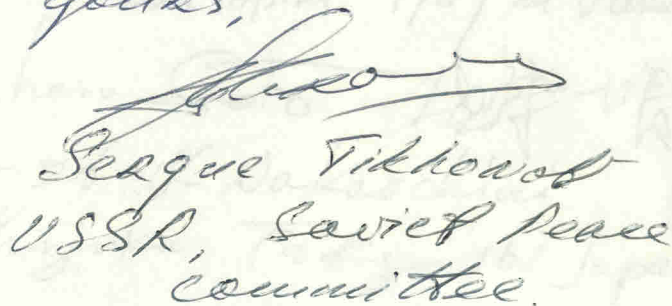 yours,
Sergue Tikhonov
USSR, Soviet Peace
committee.